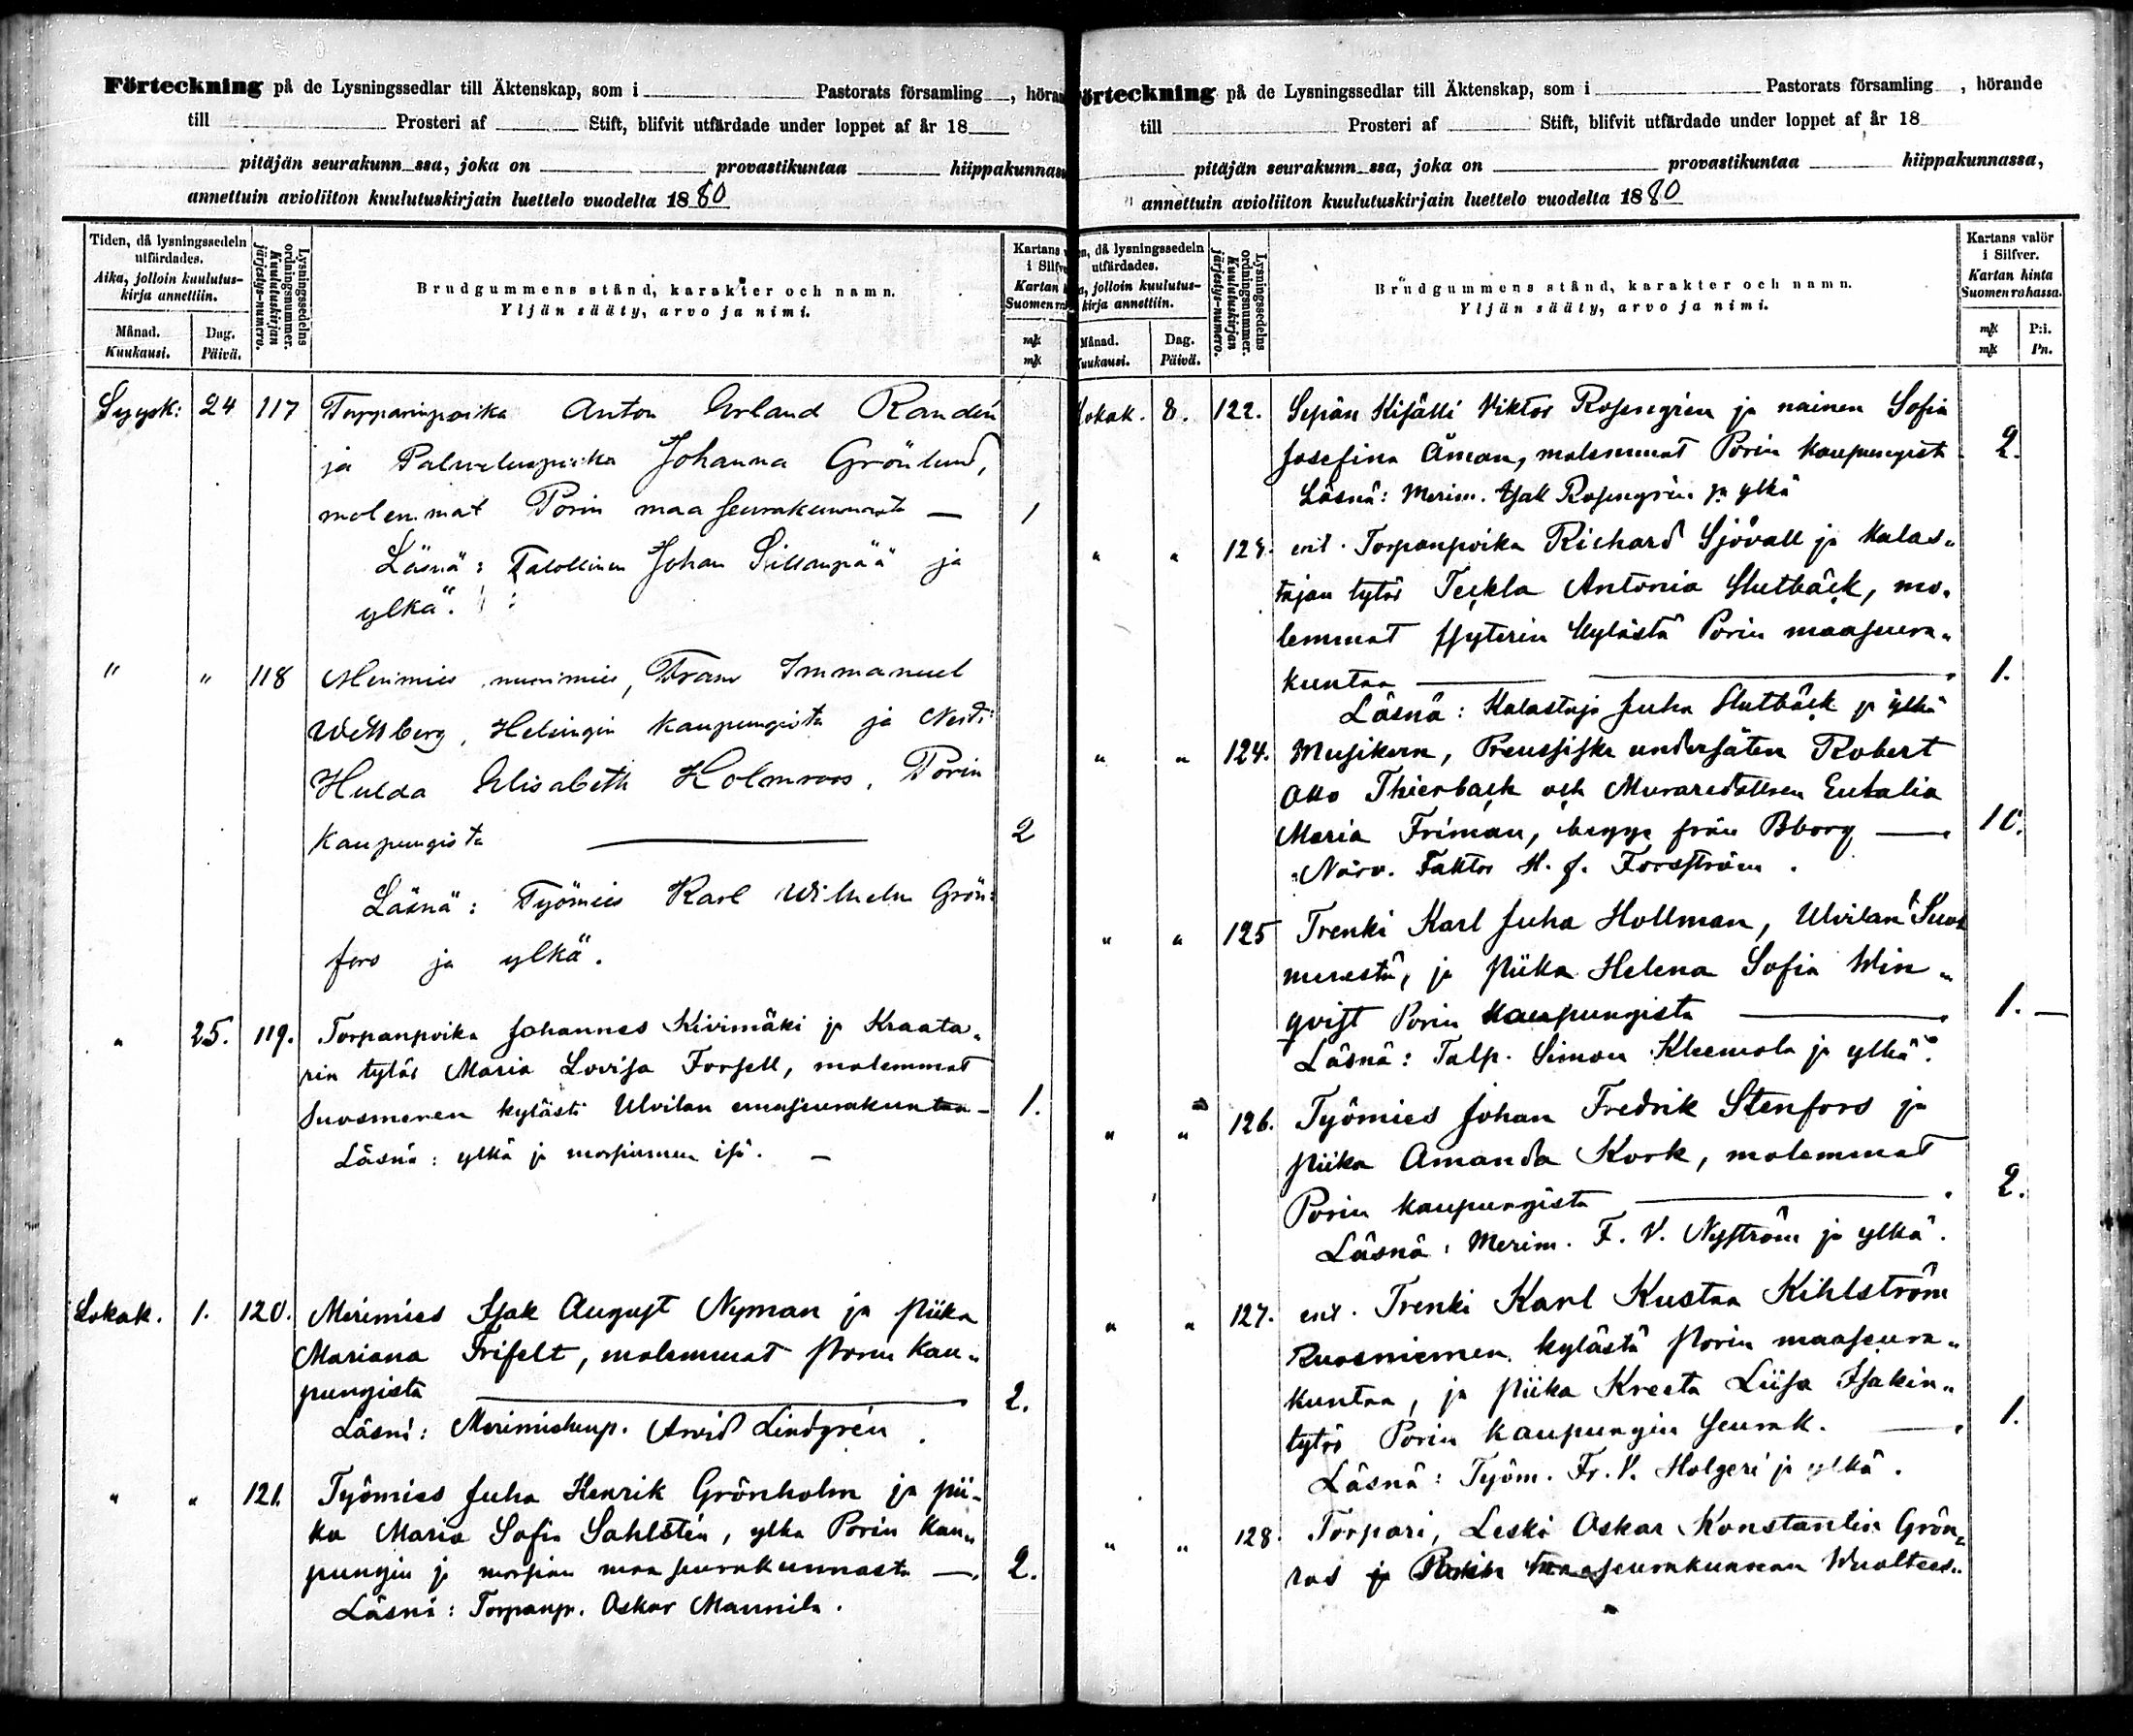 Förteckning på de Lysningssedlar till Äktenskap, som i Pastorats församling, höran
till Prosteri af Stift, blifvit utfärdade under loppet af år 18
pitäjän seurakunn ssa, joka on provastikuntaa hiippakunnas
annettuin avioliiton kuulutuskirjain luettelo vuodelta 1880
Tiden, då lysningssedeln utfärdades.
Aika, jolloin kuulutus-kirja annettiin.
Månad. Kuukausi.
Dag. Päivä.
Lysningssedelns ordningsnummer.
Kuulutuskirjan järjestys-numero.
Brudgummens stånd, karakter och namn.
Yljän sääty, arvo ja nimi.
Kartans
i Silfve
Kartan
Suomen ra
mk
mk
Syysk: 24 117 Torpparinpoika Anton Erland Randén
ja Palveluspiika Johanna Grönlund,
molemmat Porin maa seurakunnasta — 1
Läsnä: Talollinen Johan Sillanpää ja
ylkä.
" " 118 Merimies nuorimies, Frans Immanuel
Wettberg, Helsingin kaupungista ja Neiti
Hulda Elisabeth Holmroos, Porin
Kaupungista — 2
Läsnä: Työmies Karl Wilhelm Grön-
fors ja ylkä.
" 25. 119. Torpanpoika Johannes Kivimäki ja Kraata-
rin tytär Maria Lovisa Forsell, molemmat
Suosmeren kylästä Ulvilan emäseurakuntaa — 1.
Läsnä: ylkä ja morsiamen isä. —
Lokak. 1. 120. Merimies Isak August Nyman ja piika
Mariana Frifelt, molemmat Porin kau-
pungista — 2.
Läsnä: Merimiehenp. Arvid Lindgrén.
" " 121. Työmies Juha Henrik Grönholm ja pii-
ka Maria Sofia Sahlstén, ylkä Porin kau-
pungin ja morsian maaseurakunnasta — 2.
Läsnä: Torpanp. Oskar Mannila.
örteckning på de Lysningssedlar till Äktenskap, som i Pastorats församling, hörande
till Prosteri af Stift, blifvit utfärdade under loppet af år 18
pitäjän seurakunn ssa, joka on provastikuntaa hiippakunnassa,
annettuin avioliiton kuulutuskirjain luettelo vuodelta 1880
en, då lysningssedeln utfärdades.
a, jolloin kuulutus-kirja annettiin.
Månad. uukausi.
Dag. Päivä.
Lysningssedelns ordningsnummer.
Kuulutuskirjan järjestys-numero.
Brudgummens stånd, karakter och namn.
Yljän sääty, arvo ja nimi.
Kartans valör
i Silfver.
Kartan hinta
Suomen rahassa.
mk P:i.
mk Pn.
Lokak. 8. 122. Sepän Kisälli Viktor Rosengrén ja nainen Sofia
Josefina Åman, molemmat Porin kaupungista 2.
Läsnä: Merim. Isak Rosengrén ja ylkä
" " 123. ent. Torpanpoika Richard Sjövall ja kalas-
tajan tytär Teckla Antonia Slutbäck, mo-
lemmat Yyterin kylästä Porin maaseura-
kuntaa — 1.
Läsnä: Kalastaja Juha Slutbäck ja ylkä
" " 124. Musikern, Preussiske undersåten Robert
Otto Thierback och Muraredottren Eulalia
Maria Friman, begge från Bborg — 10.
Närv. Faktor H. J. Forsström.
" " 125 Trenki Karl Juha Hollman, Ulvilan Suos
merestä, ja piika Helena Sofia Win-
qvist Porin kaupungista — 1. —
Läsnä: Talp. Simon Kleemola ja ylkä.
" " 126. Työmies Johan Fredrik Stenfors ja
piika Amanda Kork, molemmat
Porin kaupungista — 2.
Läsnä: Merim. F. V. Nyström ja ylkä.
" " 127. ent. Trenki Karl Kustaa Kihlström
Ruosniemen kylästä Porin maaseura-
kuntaa, ja piika Kreeta Liisa Isakin-
tytär Porin kaupungin seurak. — 1.
Läsnä: Työm. Fr. V. Holgeri ja ylkä.
" " 128. Torpari, Leski Oskar Konstantin Grön-
ros ja Porin maaseurakunnan